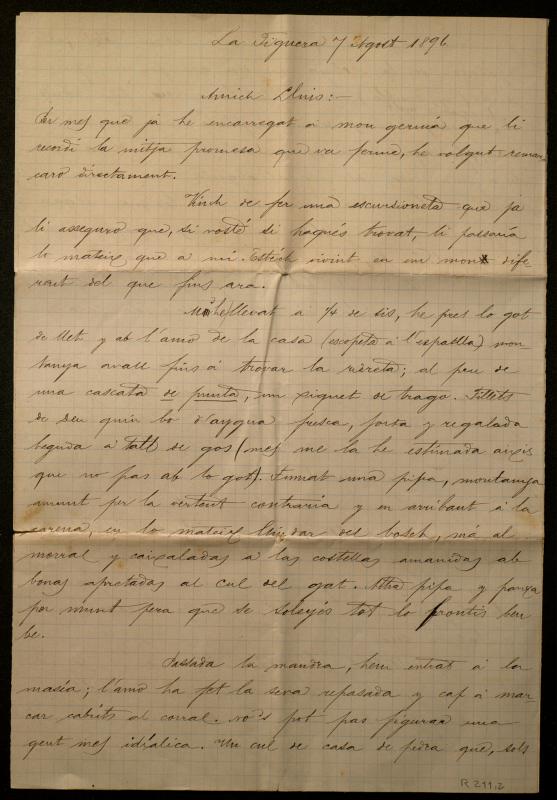 La Figuera 7 Agost 1896
Amich Lluis:-
Per mes que ja he encarregat á mon germá que li
recordi la mitja promesa que va ferme, he volgut remar-
caro directament.
Vinch de fer una escursioneta que ja
li asseguro que, si vosté si hagués trovat, li passaria
lo mateix que a mi. Estich vivint en un mon dife-
rent del que fins ara.
M'he llevat a ¼ de sis, he pres lo got
de llet y ab l'amo de la casa (escopeta á l'espatlla) mon-
tanya avall fins á trovar la riereta; al peu de
una cascata de punta, un xiquet de trago. Fillets
de Deu quin bo d'aygua fresca, forta y regalada
beguda a tall de gos (mes me la he estimada aixís
que no pas ab lo got). Fumat una pipa, montanya
amunt per la vertent contraria y en arribant á la
carena, en lo mateix llindar del bosch, má al
morral y caixaladas á las costellas amanidas ab
bonas apretadas al cul del gat. Altra pipa y panxa
per munt pera que se solejés tot lo frontis ben
be.
Passada la mandra, hem entrat á la
masía; l'amo ha fet la seva repasada y cap á mar-
car cabrits al corral. No's pot pas figurar una
gent mes idílica. Un cul de casa de pedra que, sols
R.211,2